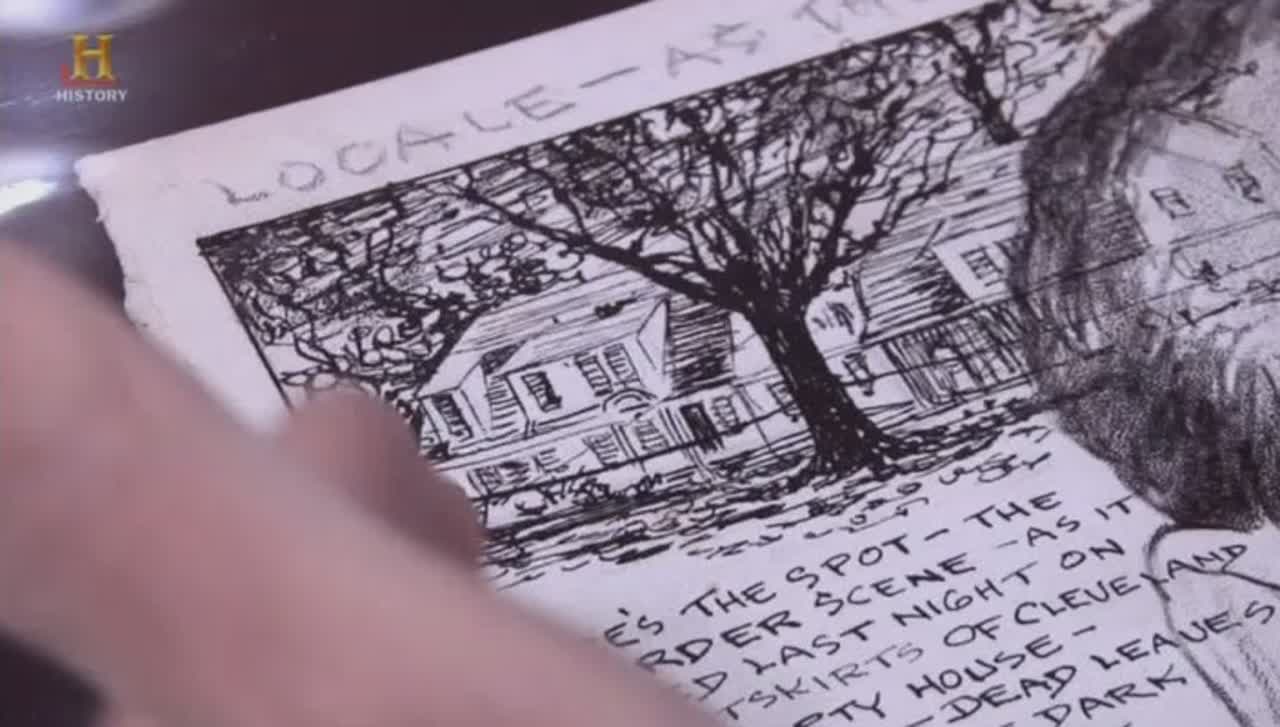 H
HISTORY
LOCALE - AS
E'S THE SPOT - THE
RDER SCENE - AS IT
D LAST NIGHT ON
TSKIRTS OF CLEVELAND
PTY HOUSE -
- DEAD LEAVES
DARK